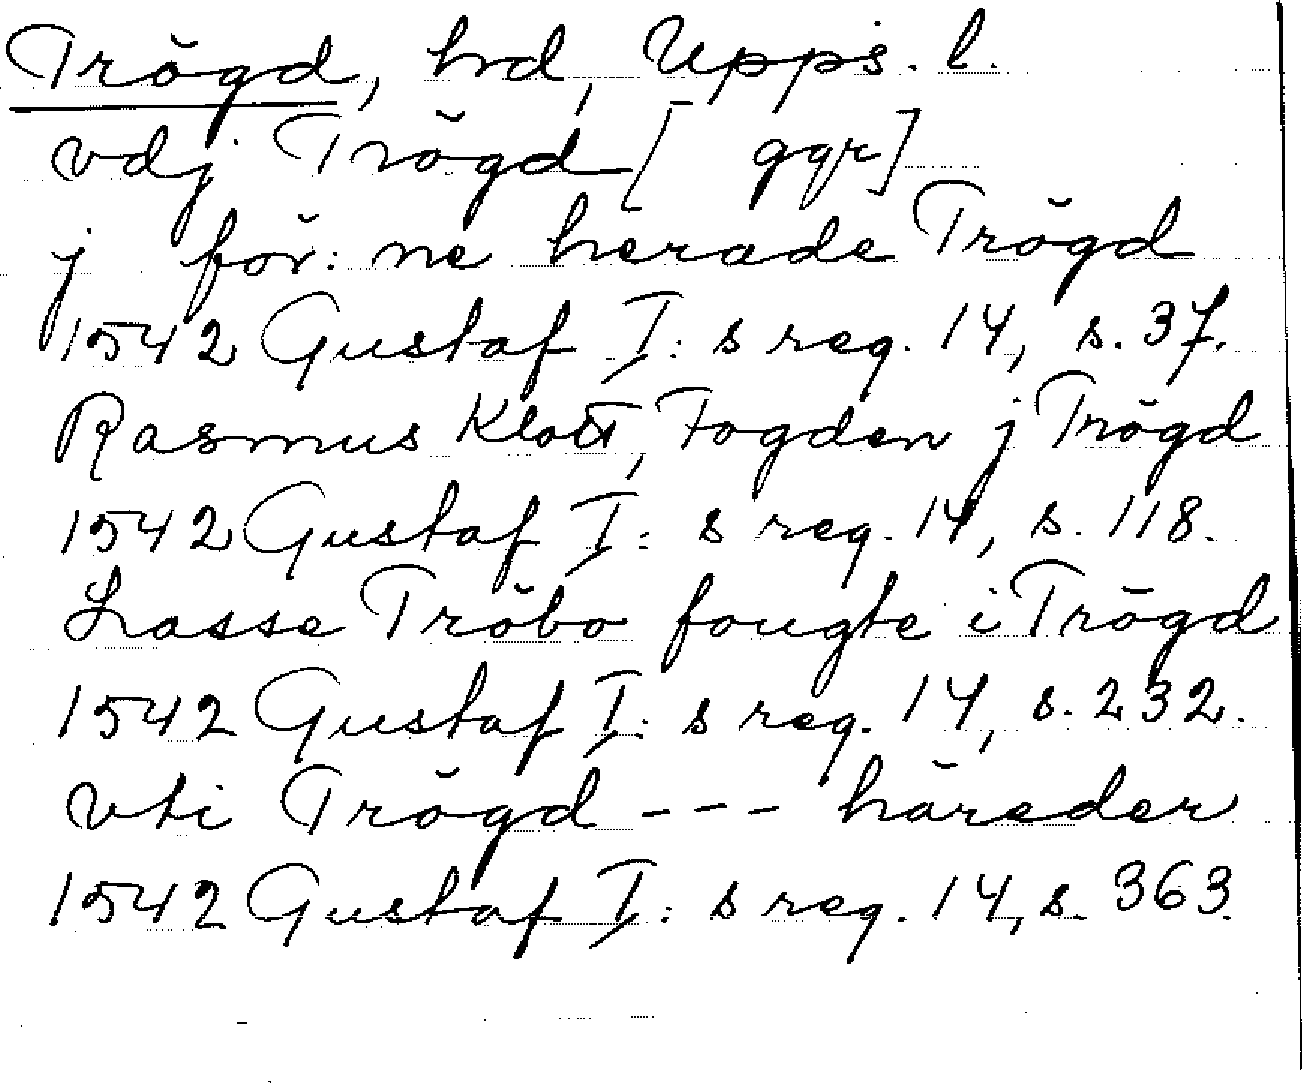 Trögd, hrd, Upps. l.
vdj Trögd [ ggr]
j för: ne herade Trögd
1542 Gustaf I: s reg. 14, s. 37.
Rasmus Klott, Fogden j Trögd
1542 Gustaf I: s reg. 14, s. 118.
Lasse Tröbo fougte i Trögd
1542 Gustaf I: s reg. 14, s. 232.
vti Trögd --- häreder
1542 Gustaf I: s reg. 14, s. 363.